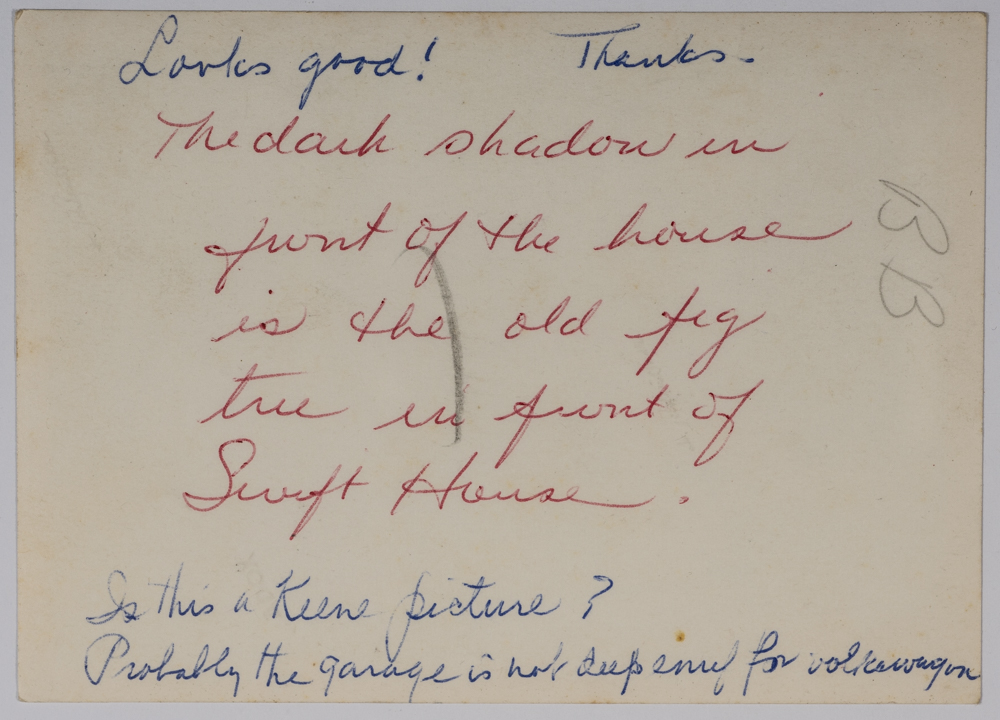 Looks good! Thanks.
The dark shadow in
front of the house
is the old fig
tree in front of
Swift House.
BB
Is this a Keene picture?
Probably the garage is not deep enuf for volkswagon